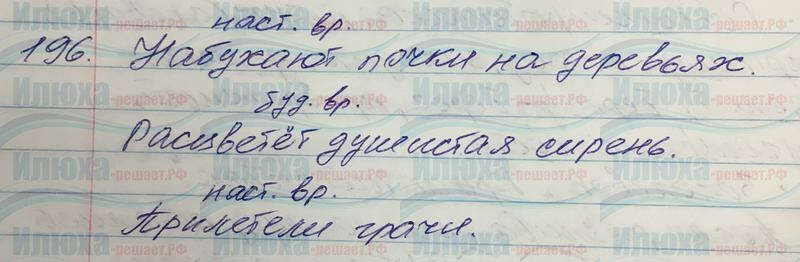 наст. вр.
196. Набухают почки на деревьях.
буд. вр.
Расцветёт душистая сирень.
наст. вр.
Прилетели грачи.
Илюха-решает.РФ